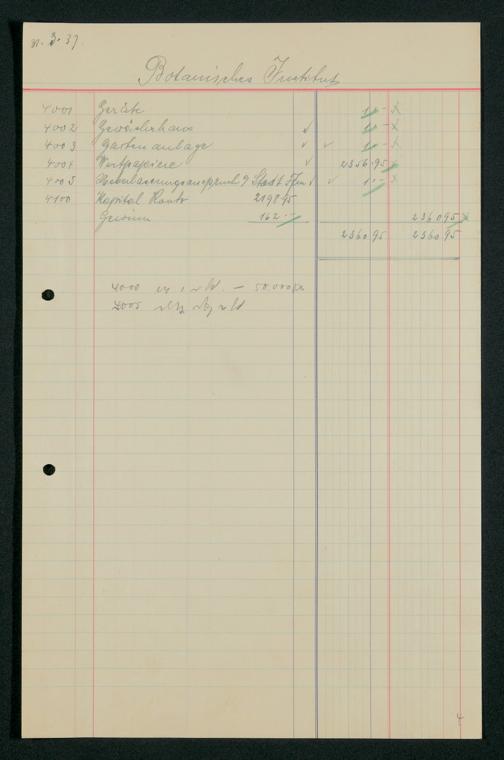 31. 3. 37.
Botanisches Institut
4001 Geräte 1 -
4002 Gewächshaus 1 -
4003 Gartenanlage 1 -
4004 Wertpapiere 2356.95
4005 Stadt 1 -
4100 Kapital Konto 2198.95
Gewinn 162.- 2360.95
2360.95 2360.95
4000 - 50.000
4